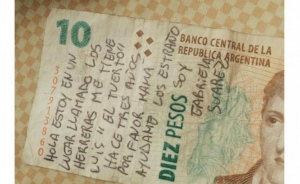 10
BANCO CENTRAL DE LA
REPUBLICA ARGENTINA
HOLA ESTOY EN UN
LUGAR LLAMADO LOS
HERRERAS ME TIENE
LUIS "EL TUERTO"
HACE TRES AÑOS
POR FAVOR MAMA
AYUDAME LOS EXTRAÑO
SOY
GABRIELA
SUARES
DIEZ PESOS